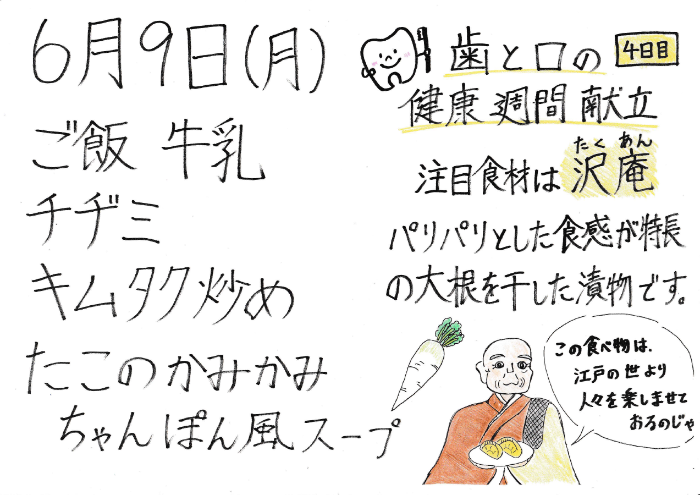 6月9日(月)
ご飯 牛乳
チヂミ
キムタク炒め
たこのかみかみ
ちゃんぽん風スープ
歯と口の
4日目
健康週間献立
たくあん
注目食材は沢庵
パリパリとした食感が特長
の大根を干した漬物です。
この食べ物は、
江戸の世より
人々を楽しませて
おるのじゃ